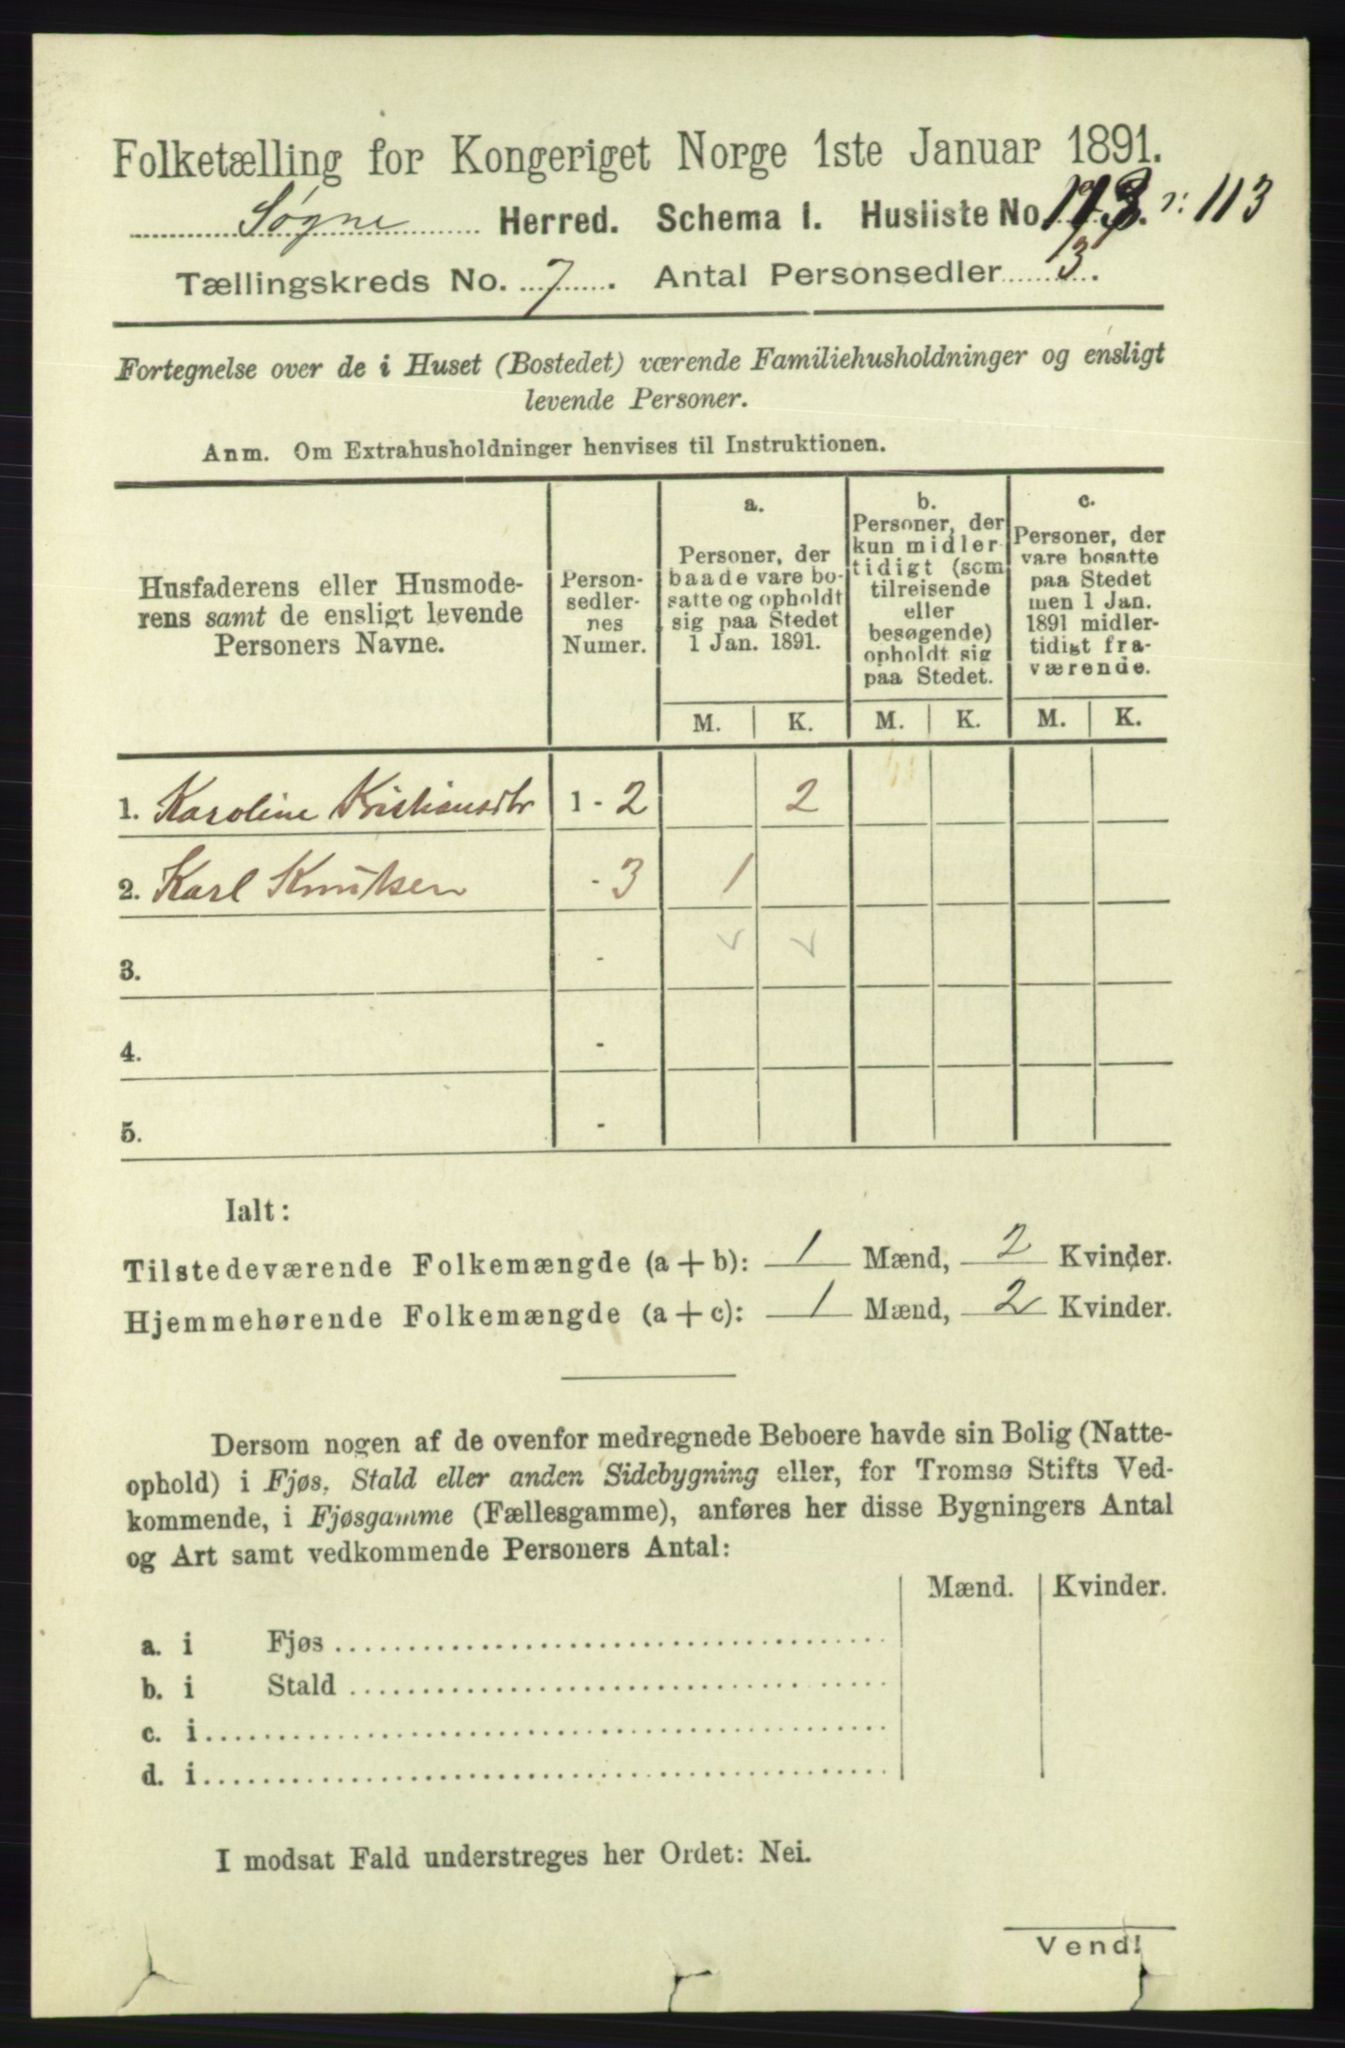 Folketælling for Kongeriget Norge 1ste Januar 1891.
Søgne Herred. Schema I. Husliste No. 113
Tællingskreds No. 7. Antal Personsedler 3.
Fortegnelse over de i Huset (Bostedet) værende Familiehusholdninger og ensligt
levende Personer.
Anm. Om Extrahusholdninger henvises til Instruktionen.
Husfaderens eller Husmode-
rens samt de ensligt levende
Personers Navne.
Person-
sedler-
nes
Numer.
a.
Personer, der
baade vare bo-
satte og opholdt
sig paa Stedet
1 Jan. 1891.
b.
Personer, der
kun midler
tidigt (som
tilreisende
eller
besøgende)
opholdt sig
paa Stedet.
c.
Personer, der
vare bosatte
paa Stedet
men 1 Jan.
1891 midler-
tidigt fra-
værende.
M. K. M. K. M. K.
1. Karoline Kristiansdtr 1 - 2 2
2. Karl Knutsen - 3 1
3. -
4. -
5. -
Ialt:
Tilstedeværende Folkemængde (a + b): 1 Mænd, 2 Kvinder.
Hjemmehørende Folkemængde (a + c): 1 Mænd, 2 Kvinder.
Dersom nogen af de ovenfor medregnede Beboere havde sin Bolig (Natte-
ophold) i Fjøs, Stald eller anden Sidebygning eller, for Tromsø Stifts Ved-
kommende, i Fjøsgamme (Fællesgamme), anføres her disse Bygningers Antal
og Art samt vedkommende Personers Antal:
Mænd. Kvinder.
a. i Fjøs
b. i Stald
c. i
d. i
I modsat Fald understreges her Ordet: Nei.
Vend!